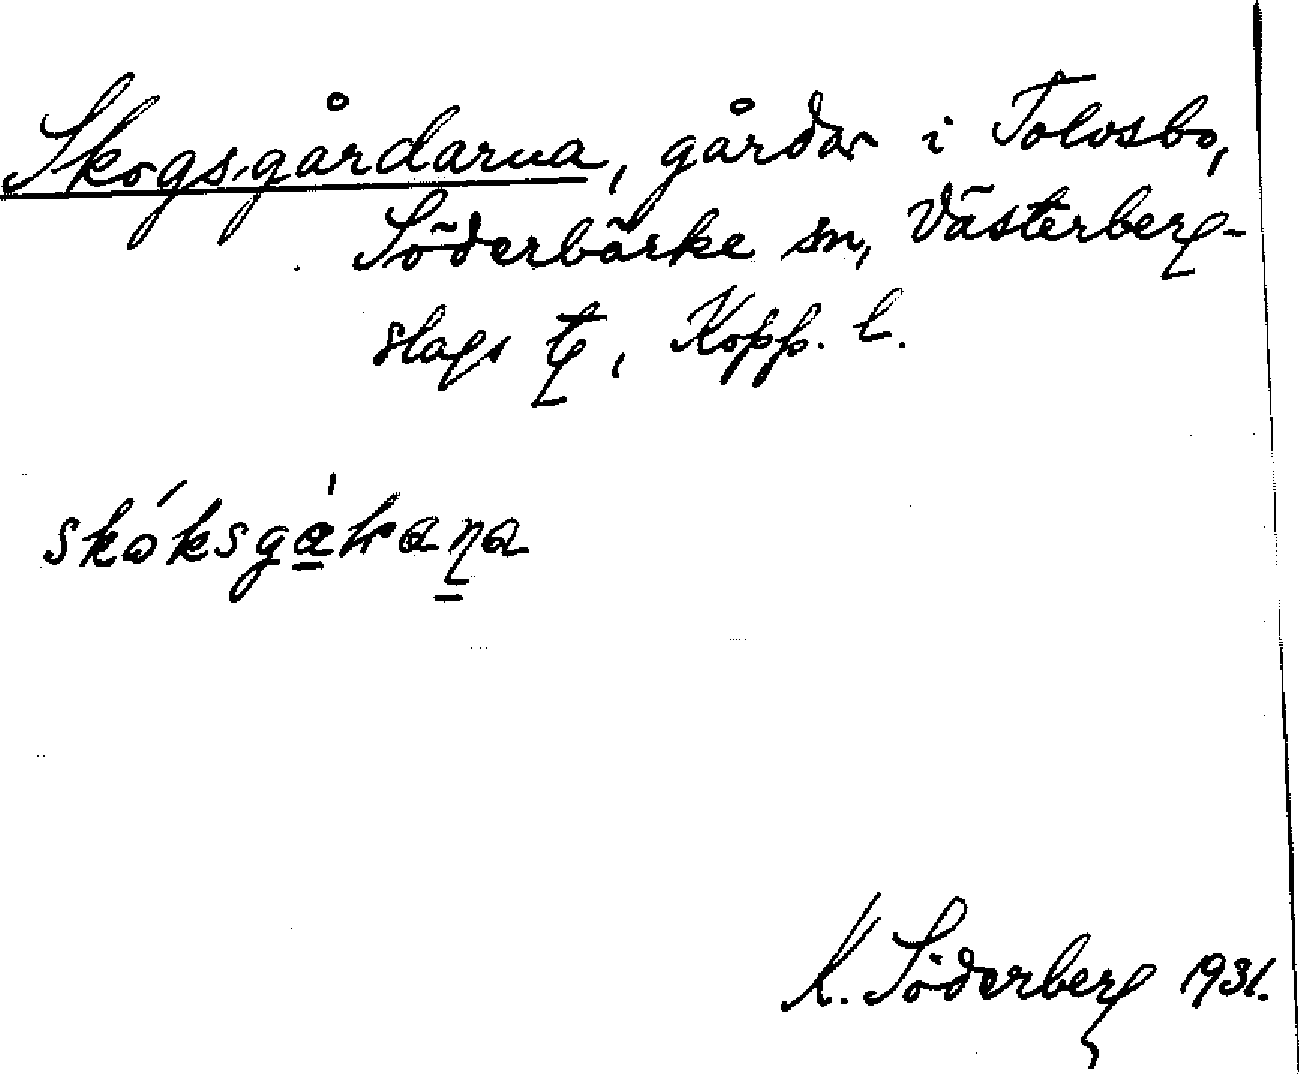 Skogsgårdarna, gårdar i Tolvsbo,
Söderbärke sn, Västerberg-
slags tg, Kopp. l.
K. Söderberg 1931.